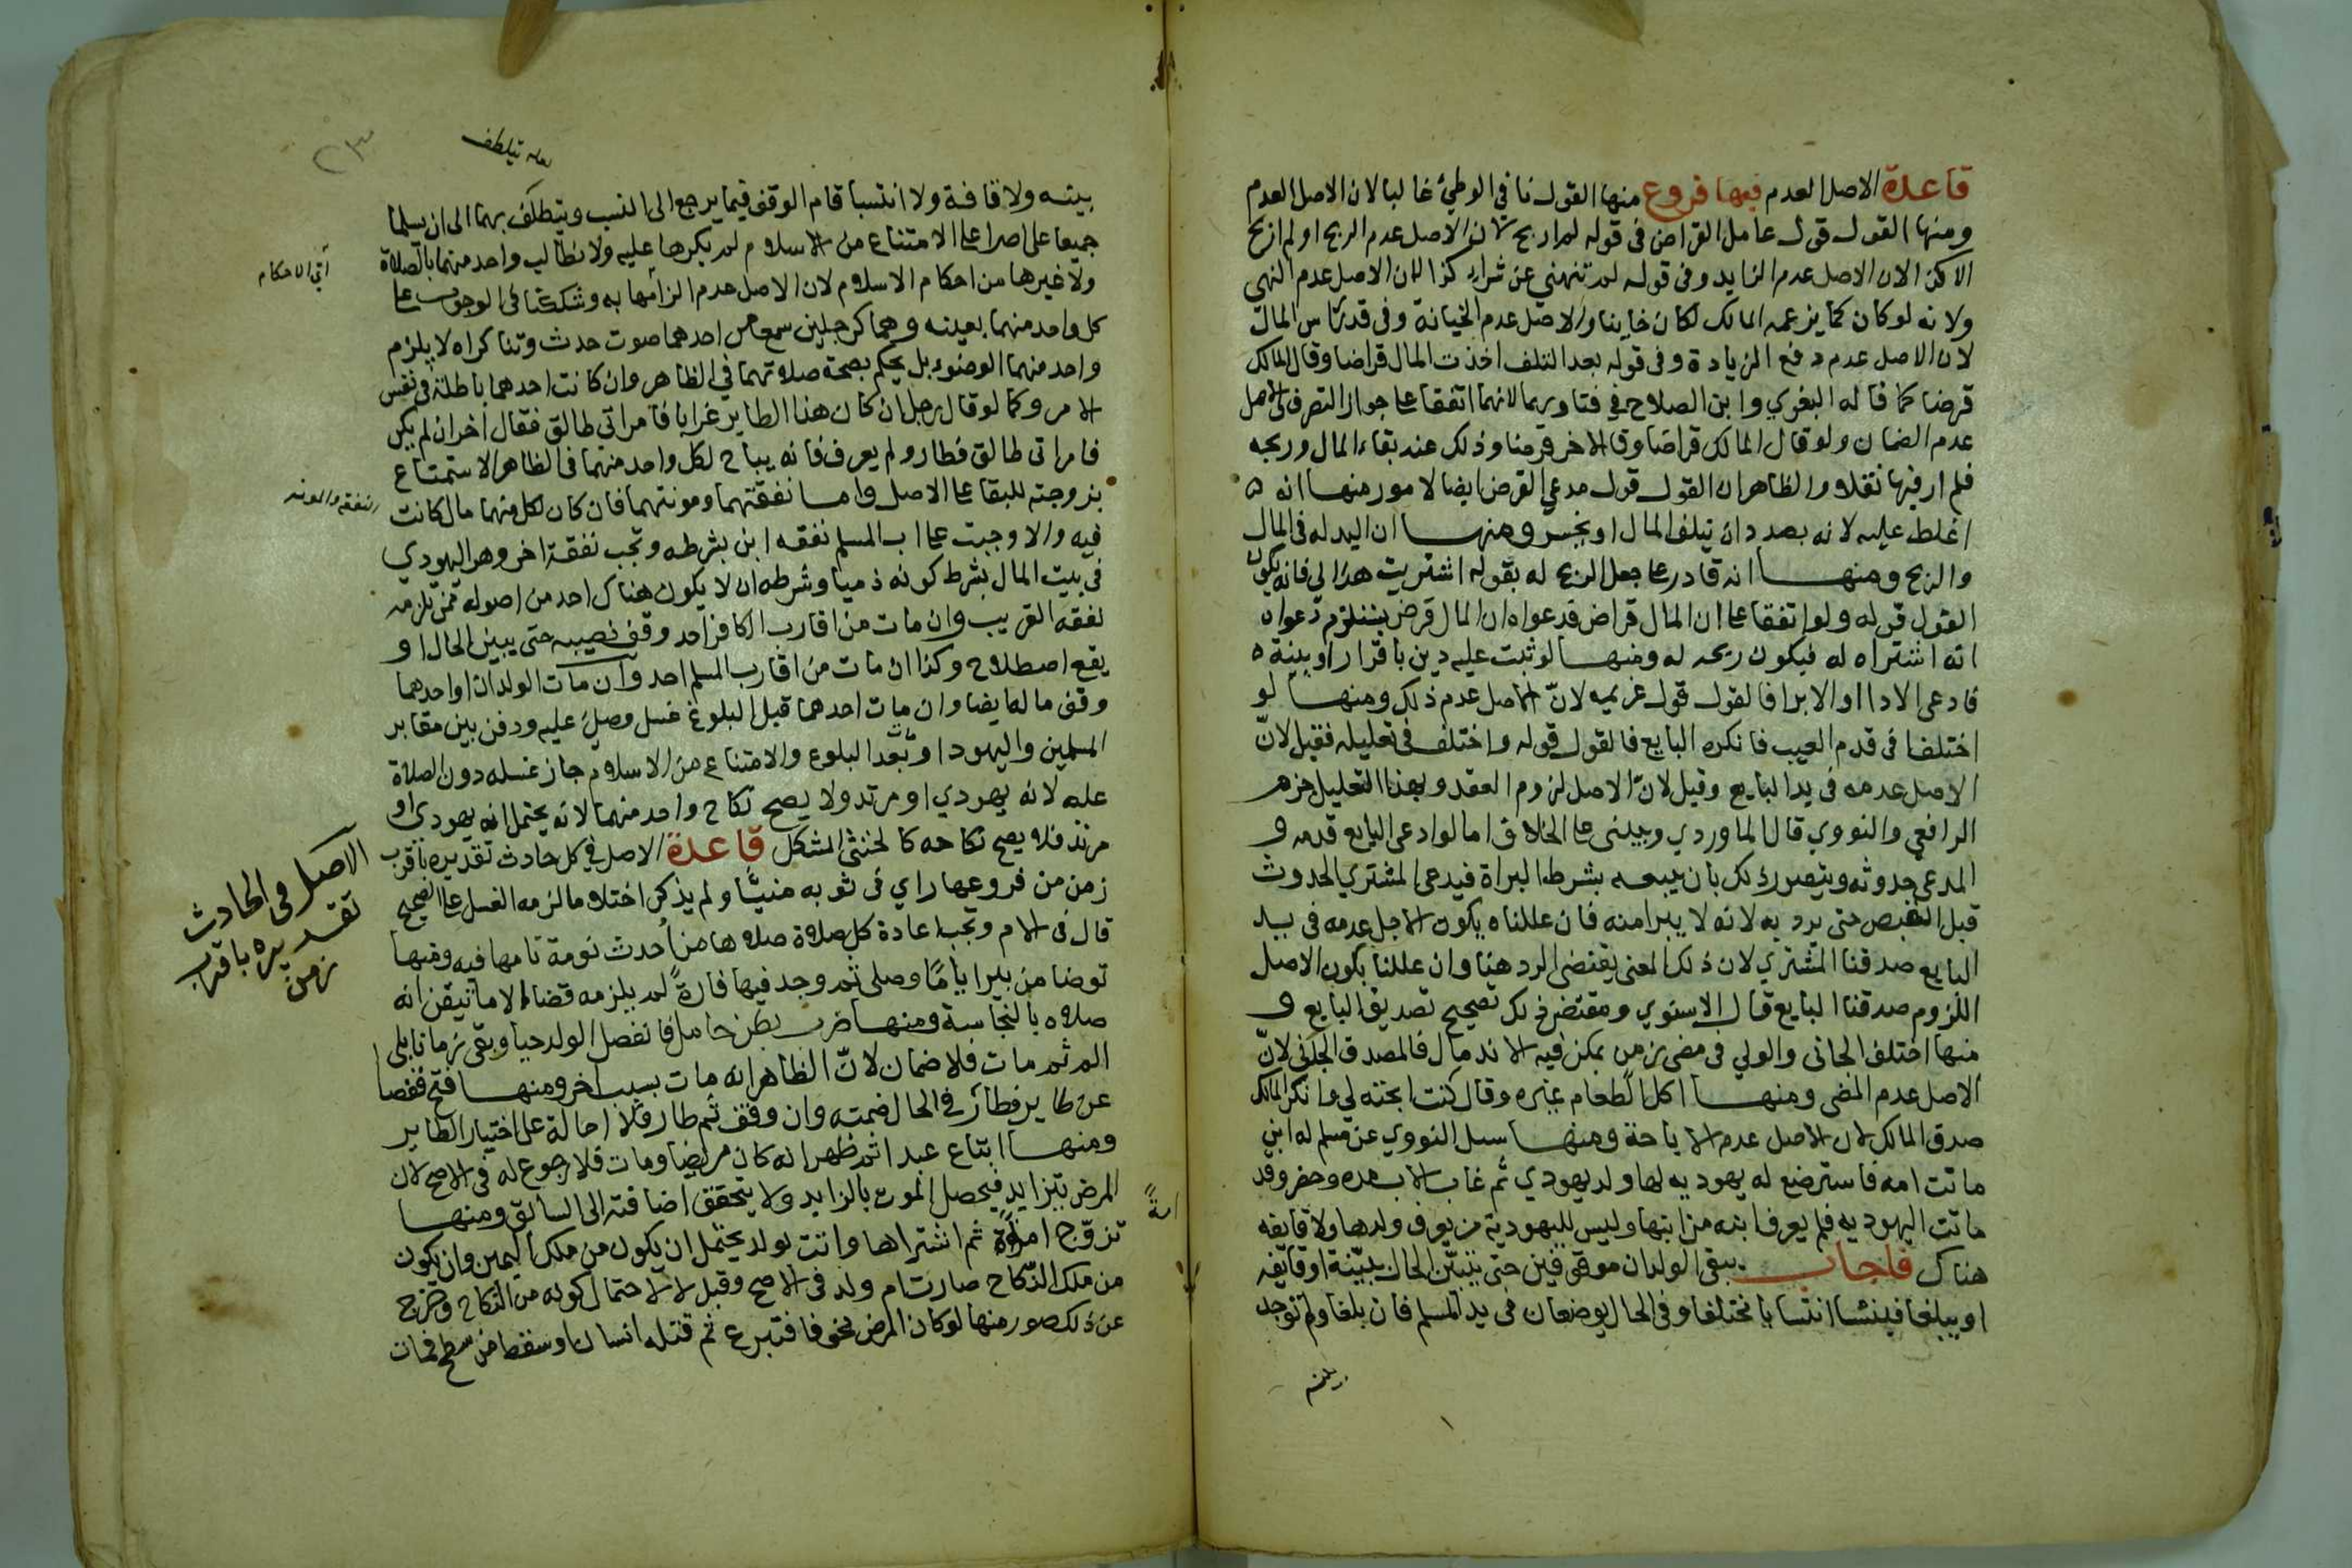 قاعدة الاصل العدم فيها فروع منها القول نافي الوطئ غالبا لان الاصل العدم
ومنها القول قول عامل القراض في قوله لم اربح لان الاصل عدم الربح او لم اربح
الا كذا لان الاصل عدم الزايد وفي قوله لم تنهني عن شراء كذا لان الاصل عدم النهي
ولانه لو كان كما يزعمه المالك لكان خاينا والاصل عدم الخيانة وفي قدر راس المال
لان الاصل عدم دفع الزيادة وفي قوله بعد التلف اخذت المال قراضا وقال المالك
قرضا كما قاله البغوي وابن الصلاح في فتاويهما لانهما اتفقا على جواز التصرف والاصل
عدم الضمان ولو قال المالك قراضا وقال الاخر قرضا وذلك عند بقاء المال وربحه
فلم ار فيها نقلا والظاهر ان القول قول مدعي القرض ايضا لامور منها انه
اغلظ عليه لانه بصدد ان يتلف المال او يخسر ومنها ان اليد له في المال
والربح ومنها انه قادر على جعل الربح له بقوله اشتريت هذا لي فانه يكون
القول قوله ولو اتفقا على ان المال قراض فدعواه ان المال قرض يستلزم دعواه
انه اشتراه له فيكون ربحه له ومنها لو ثبت عليه دين باقرار او بينة
فادعى الادا او الابرا فالقول قول غريمه لان الاصل عدم ذلك ومنها لو
اختلفا في قدم العيب فانكره البايع فالقول قوله واختلف في تعليله فقيل لان
الاصل عدمه في يد البايع وقيل لان الاصل لزوم العقد وبهذا التعليل جزم
الرافعي والنووي قال الماوردي ويبنى على الخلاف ما لو ادعى البايع قدمه و
المدعي حدوثه ويتصور ذلك بان يبيعه بشرط البراة فيدعي المشتري الحدوث
قبل القبض حتى يرد به لانه لا يبرا منه فان عللناه بكون الاصل عدمه في يد
البايع صدقنا المشتري لان ذلك المعنى يقتضي الرد هنا وان عللنا بكون الاصل
اللزوم صدقنا البايع قال الاسنوي ومقتضى ذلك تصحيح تصديق البايع و
منها اختلف الجاني والولي في مضي زمن يمكن فيه الاندمال فالمصدق الجاني لان
الاصل عدم المضي ومنها اكل طعام غيره وقال كنت ابحته لي وانكر المالك
صدق المالك لان الاصل عدم الاباحة ومنها سيل النووي عن مسلم له ابن
ماتت امه فاسترضع له يهوديه لها ولد يهودي ثم غاب الاب مده وحضر وقد
ماتت اليهوديه فلم يعرف ابنه من ابنها وليس لليهودية من يعرف ولدها ولا قايفه
هناك فاجاب يبقى الولدان موقوفين حتى يتبين الحال ببينة او قايفه
او يبلغا فينتسبا انتسابا مختلفا وفي الحال يوضعان في يد المسلم فان بلغا ولم توجد
بينه ولا قافة ولا انتسبا قام الوقف فيما يرجع الى النسب ويتلطف بهما الى ان يسلما
جميعا على اصرا على الامتناع من الاسلام لم يكرها عليه ولا يطالب واحد منهما بالصلاة
ولا غيرها من احكام الاسلام لان الاصل عدم الزامها به وشككنا في الوجوب على
كل واحد منهما بعينه وهما كرجلين سمع من احدهما صوت حدث وتناكراه لا يلزم
واحد منهما الوضوء بل يحكم بصحة صلاتهما في الظاهر وان كانت احدهما باطلة في نفس
الامر وكما لو قال رجل ان كان هذا الطاير غرابا فامراتي طالق فقال اخر ان لم يكن
فامراتي طالق فطار ولم يعرف فانه يباح لكل واحد منهما في الظاهر الاستمتاع
بزوجته للبقا على الاصل واما نفقتهما ومونتهما فان كان لكل منهما مال كانت
فيه والا وجبت على اب المسلم نفقه ابن بشرطه وتجب نفقة اخر وهو اليهودي
في بيت المال بشرط كونه ذميا وشرطه ان لا يكون هناك احد من اصوله ممن تلزمه
نفقه القريب وان مات من اقارب الكافر احد وقف نصيبه حتى يبين الحال او
يقع اصطلاح وكذا ان مات من اقارب المسلم احد وان مات الولدان او احدهما
وقف ماله ايضا وان مات احدهما قبل البلوغ غسل وصلي عليه ودفن بين مقابر
المسلمين واليهود او بعد البلوع والامتناع من الاسلام جاز غسله دون الصلاة
عليه لانه يهودي او مرتد ولا يصح نكاح واحد منهما لانه يحتمل انه يهودي او
مرتد فلا يصح نكاحه كالخنثى المشكل قاعدة الاصل في كل حادث تقديره باقرب
زمن من فروعها راي في ثوبه منيّا ولم يذكر احتلاما لزمه الغسل على الصحيح
قال في الام وتجب اعادة كل صلاة صلاها من احدث نومة نامها فيه ومنها
توضا من بير اياما وصلى ثم وجد فيها فارة لم يلزمه قضاء الا ما تيقن انه
صلاه بالنجاسة ومنها ضرب بطن حامل فانفصل الولد حيا وبقي زمانا بلى
الم ثم مات فلا ضمان لان الظاهر انه مات بسبب اخر ومنها فتح قفصا
عن طاير فطار في الحال ضمنه وان وقف ثم طار فلا احالة على اختيار الطاير
ومنها ابتاع عبدا ثم ظهر انه كان مريضا ومات فلا رجوع له في الاصح لان
المرض يتزايد فيحصل الموت بالزايد ولا يتحقق اضافته الى السابق ومنها
تزوج امة ثم اشتراها واتت بولد يحتمل ان يكون من ملك اليمين وان يكون
من ملك النكاح صارت ام ولد في الاصح وقيل لا لاحتمال كونه من النكاح وخرج
عن ذلك صور منها لو كان المرض مخوفا فتبرع ثم قتله انسان او سقط من سطح فمات
يتلطف
الاحكام
النفقه والمونه
الاصل في الحادث
تقديره باقرب
زمن
امة
٢٣